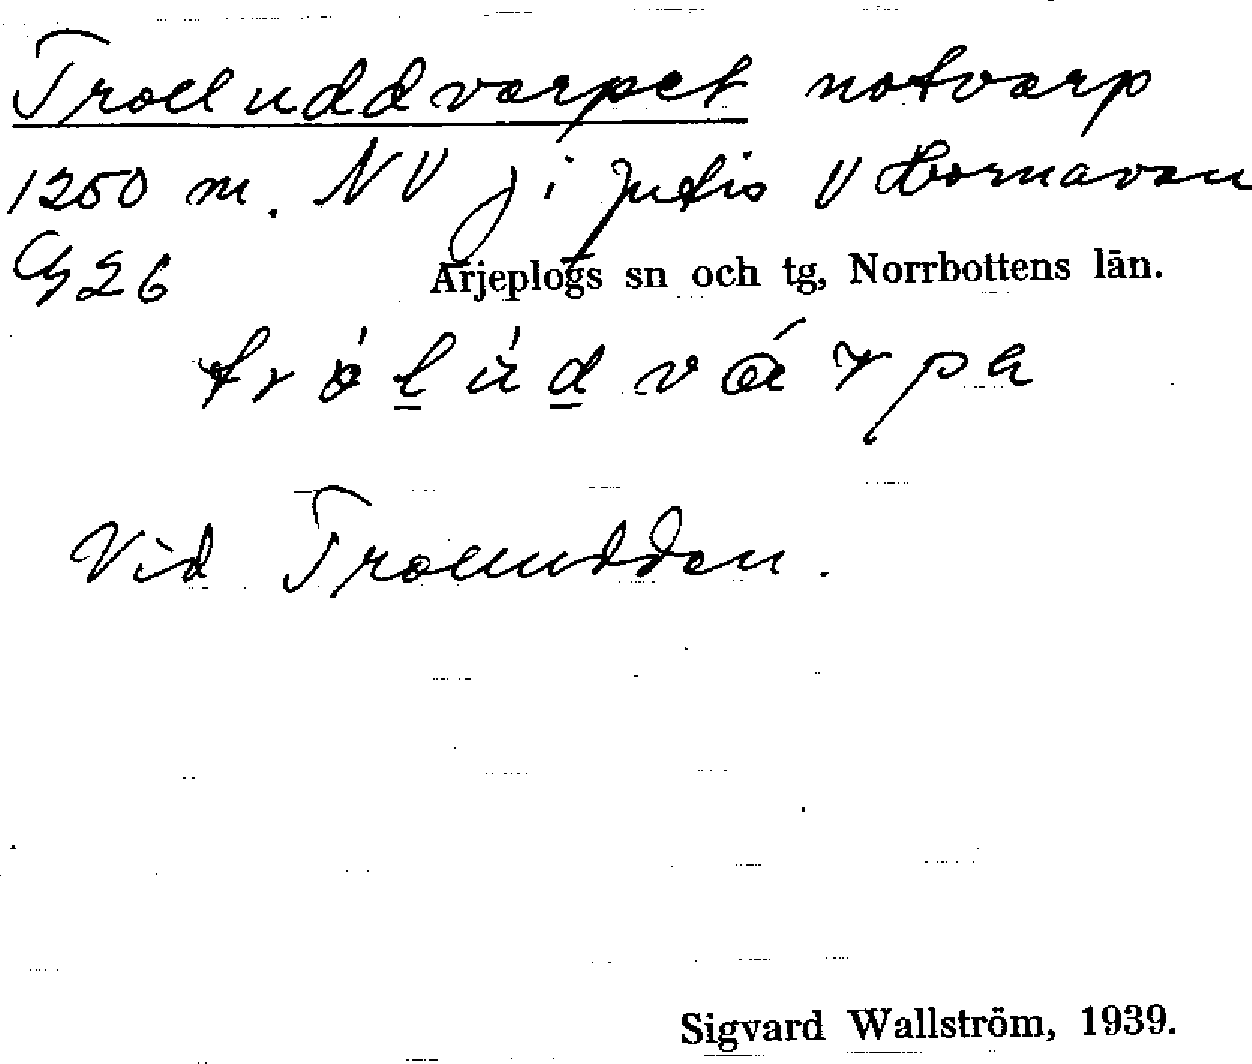 Trolluddvarpet notvarp
1250 m. NV j i Jutis V Hornavan
G26 Arjeplogs sn och tg, Norrbottens län.
Vid Trolludden.
Sigvard Wallström, 1939.